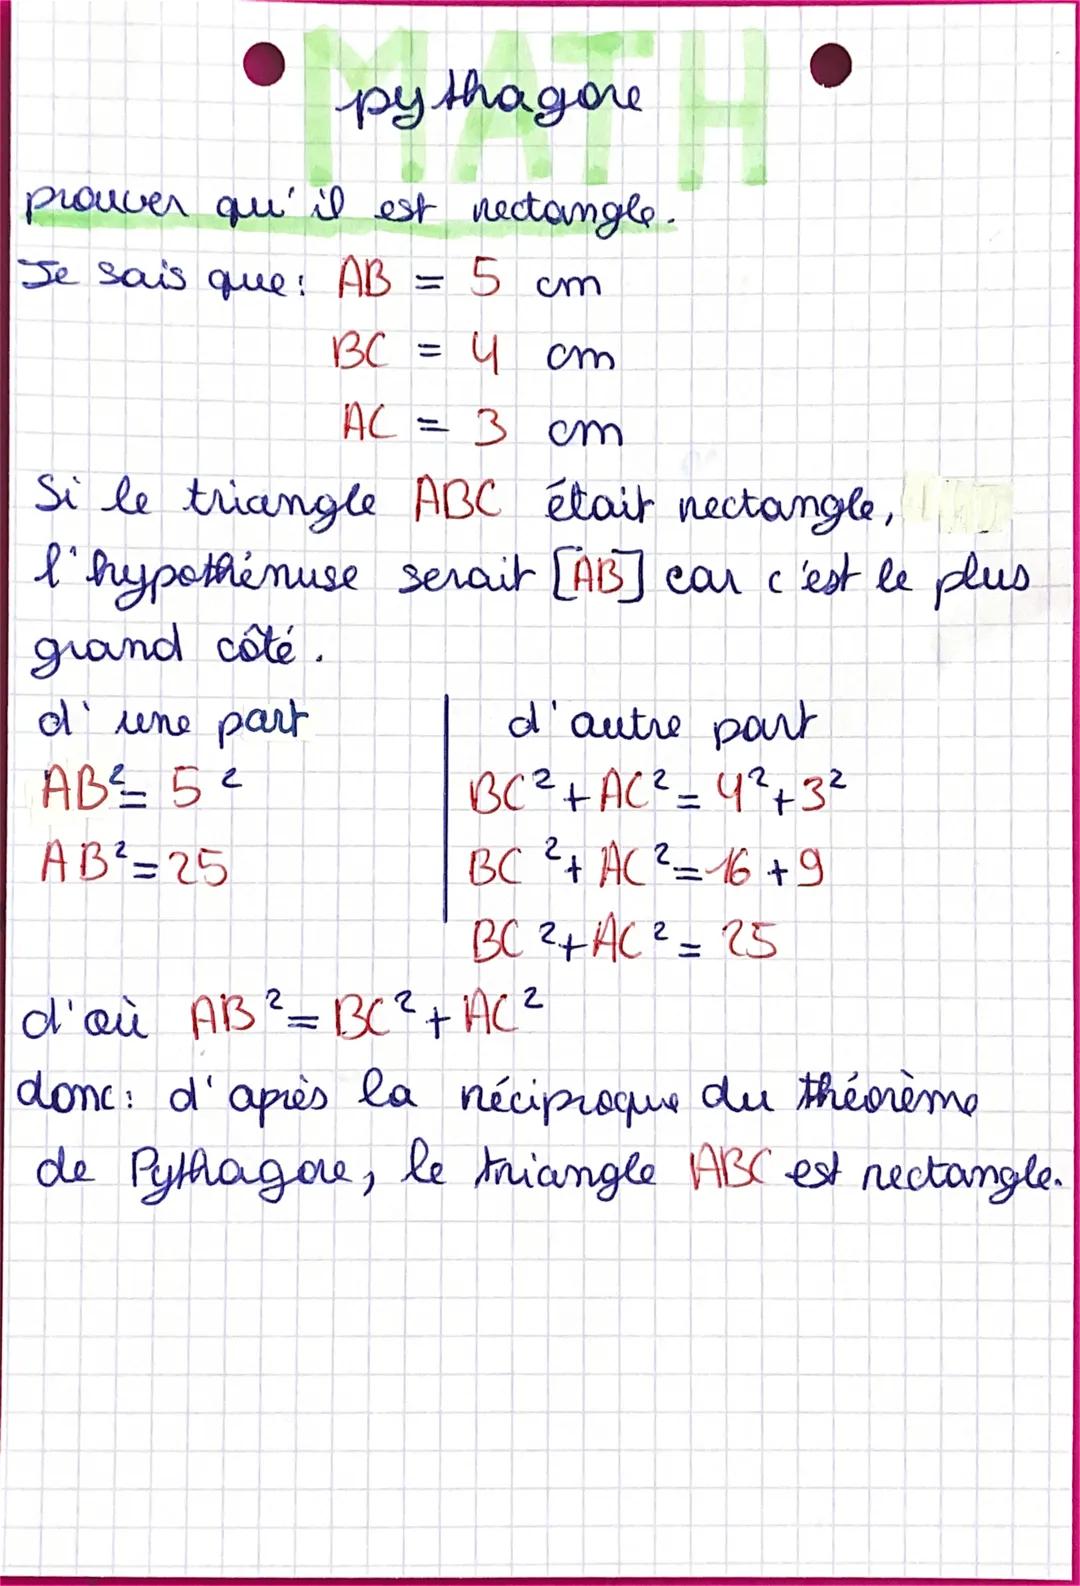 MATH
pythagore
prouver qu'il est rectangle.
Je sais que: AB = 5 cm
BC = 4 cm
AC = 3 cm
Si le triangle ABC était rectangle,
l'hypothénuse serait [AB] car c'est le plus
grand côté.
d'une part
AB² = 5²
AB² = 25
d'autre part
BC² + AC² = 4² + 3²
BC² + AC² = 16 + 9
BC² + AC² = 25
d'où AB² = BC² + AC²
donc: d'après la réciproque du théorème
de Pythagore, le triangle ABC est rectangle.